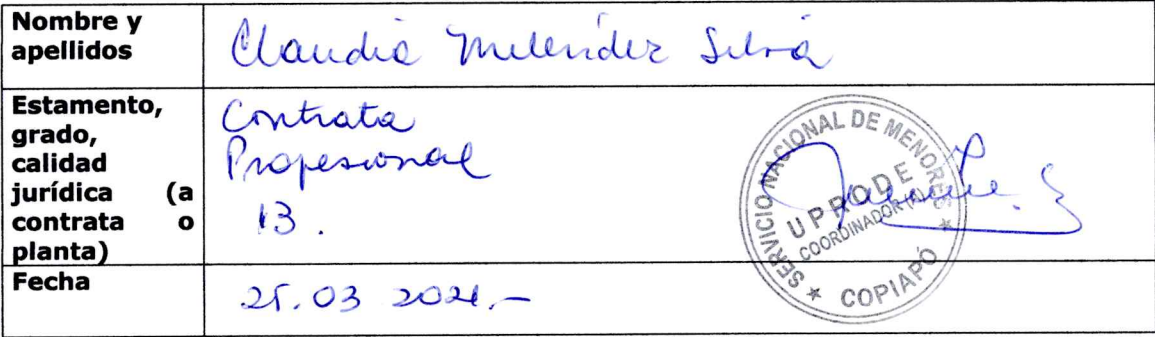 Nombre y
apellidos
Claudia Meléndez Silva
Estamento,
grado,
calidad
jurídica (a
contrata o
planta)
Contrata
Profesional
13.
SERVICIO NACIONAL DE MENORES
UPRODE
COORDINADOR(A)
★ COPIAPÓ ★
Fecha
25.03 2021.-